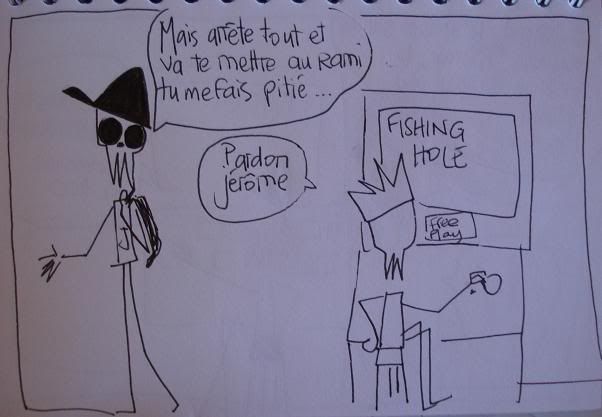 Mais arrête tout et
va te mettre au Rami
tu me fais pitié ...
Pardon
jérôme
FISHING
HOLE
Free
Play